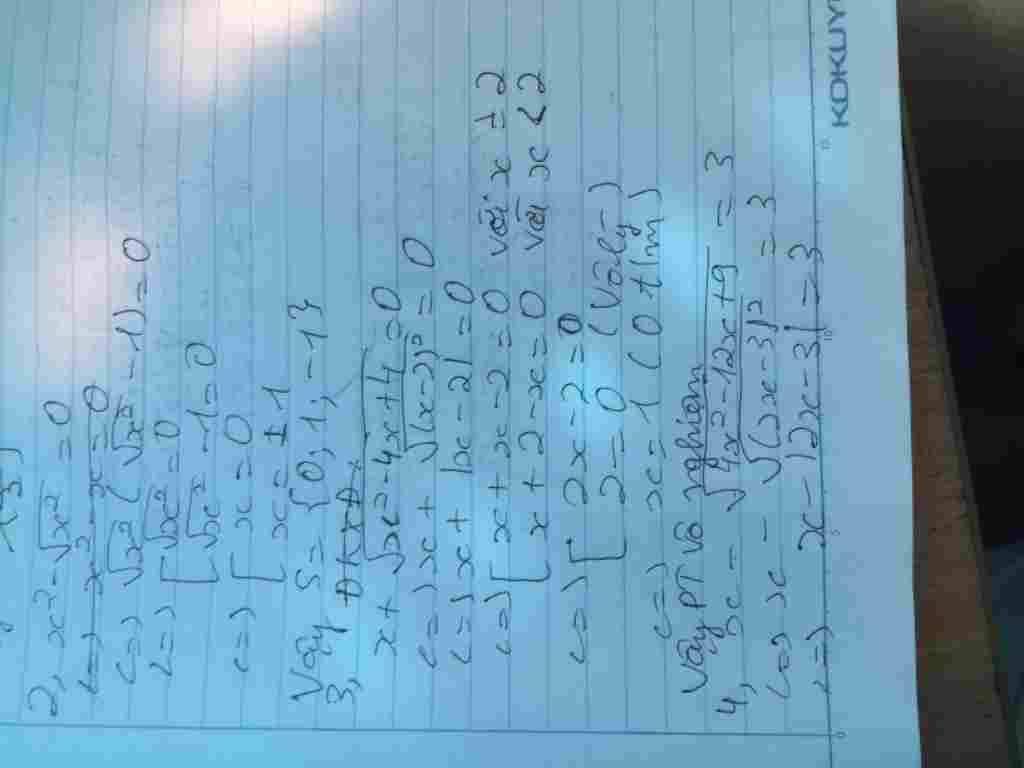 2, x² - √x² = 0
<=> x² - x = 0
<=> √x² (√x² - 1) = 0
<=> [ √x² = 0
√x² - 1 = 0
<=> [ x = 0
x = ± 1
Vậy S = {0; 1; -1}
3, ĐKXĐ
x + √x² - 4x + 4 = 0
<=> x + √(x-2)² = 0
<=> x + |x - 2| = 0
<=> [ x + x - 2 = 0 với x ± 2
x + 2 - x = 0 với x < 2
<=> [ 2x - 2 = 0
2 = 0 (Vô lý)
<=> x = 1 (0 t/m)
Vậy PT vô nghiệm
4, x - √4x² - 12x + 9 = 3
<=> x - √(2x - 3)² = 3
<=> x - |2x - 3| = 3
KOKUY